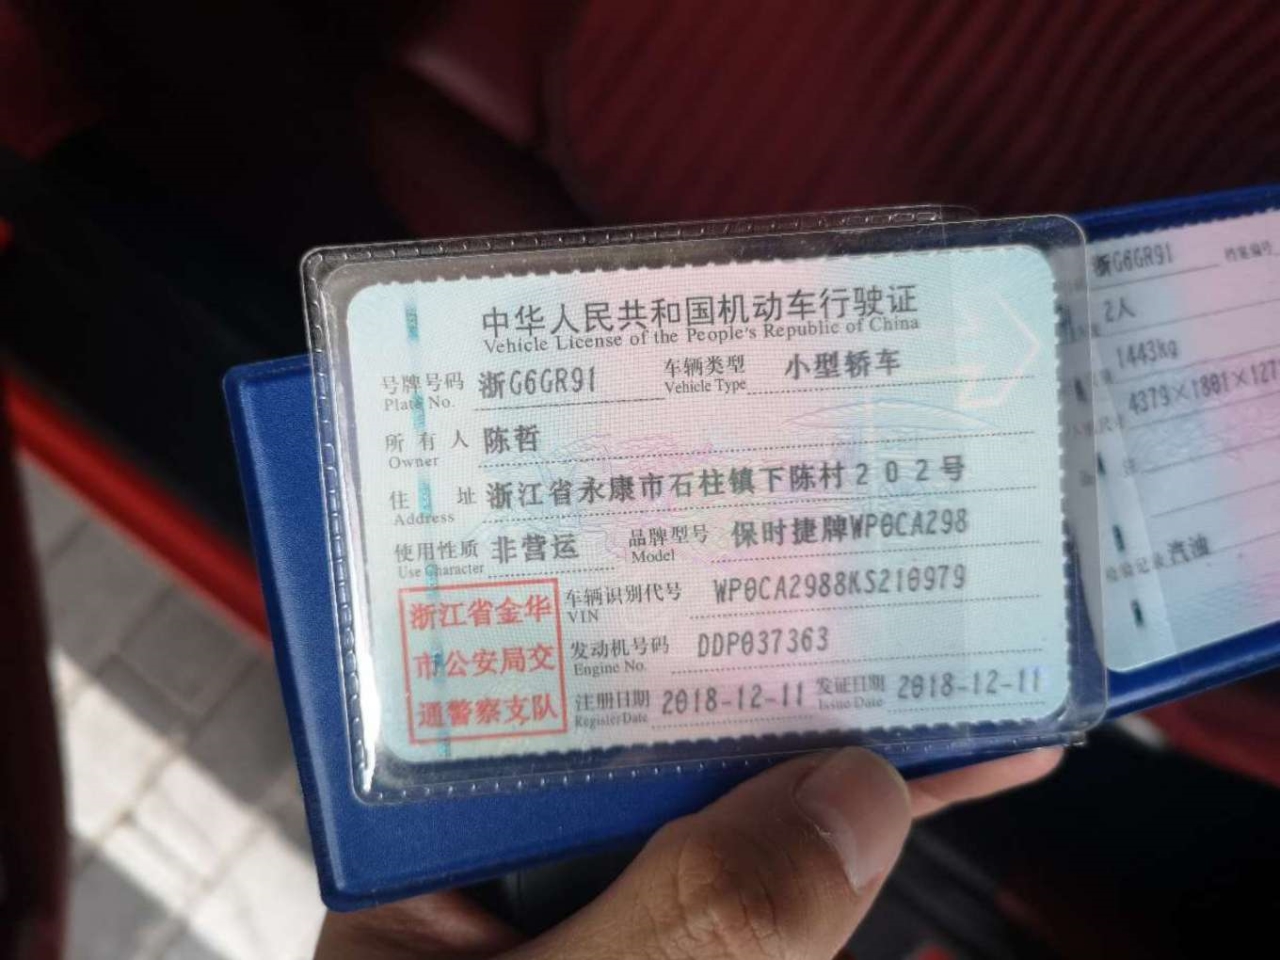 中华人民共和国机动车行驶证
Vehicle License of the People's Republic of China
号牌号码 浙G6GR91 车辆类型 小型轿车
Plate No. Vehicle Type
所有人 陈哲
Owner
住址 浙江省永康市石柱镇下陈村202号
Address
使用性质 非营运 品牌型号 保时捷牌WP0CA298
Use Character Model
浙江省金华
市公安局交
通警察支队
车辆识别代号 WP0CA2988KS210979
VIN
发动机号码 DDP037363
Engine No.
注册日期 2018-12-11 发证日期 2018-12-11
Register Date Issue Date
浙G6GR91 档案编号
2人
1443kg
4379×1801×127
检验记录 汽油